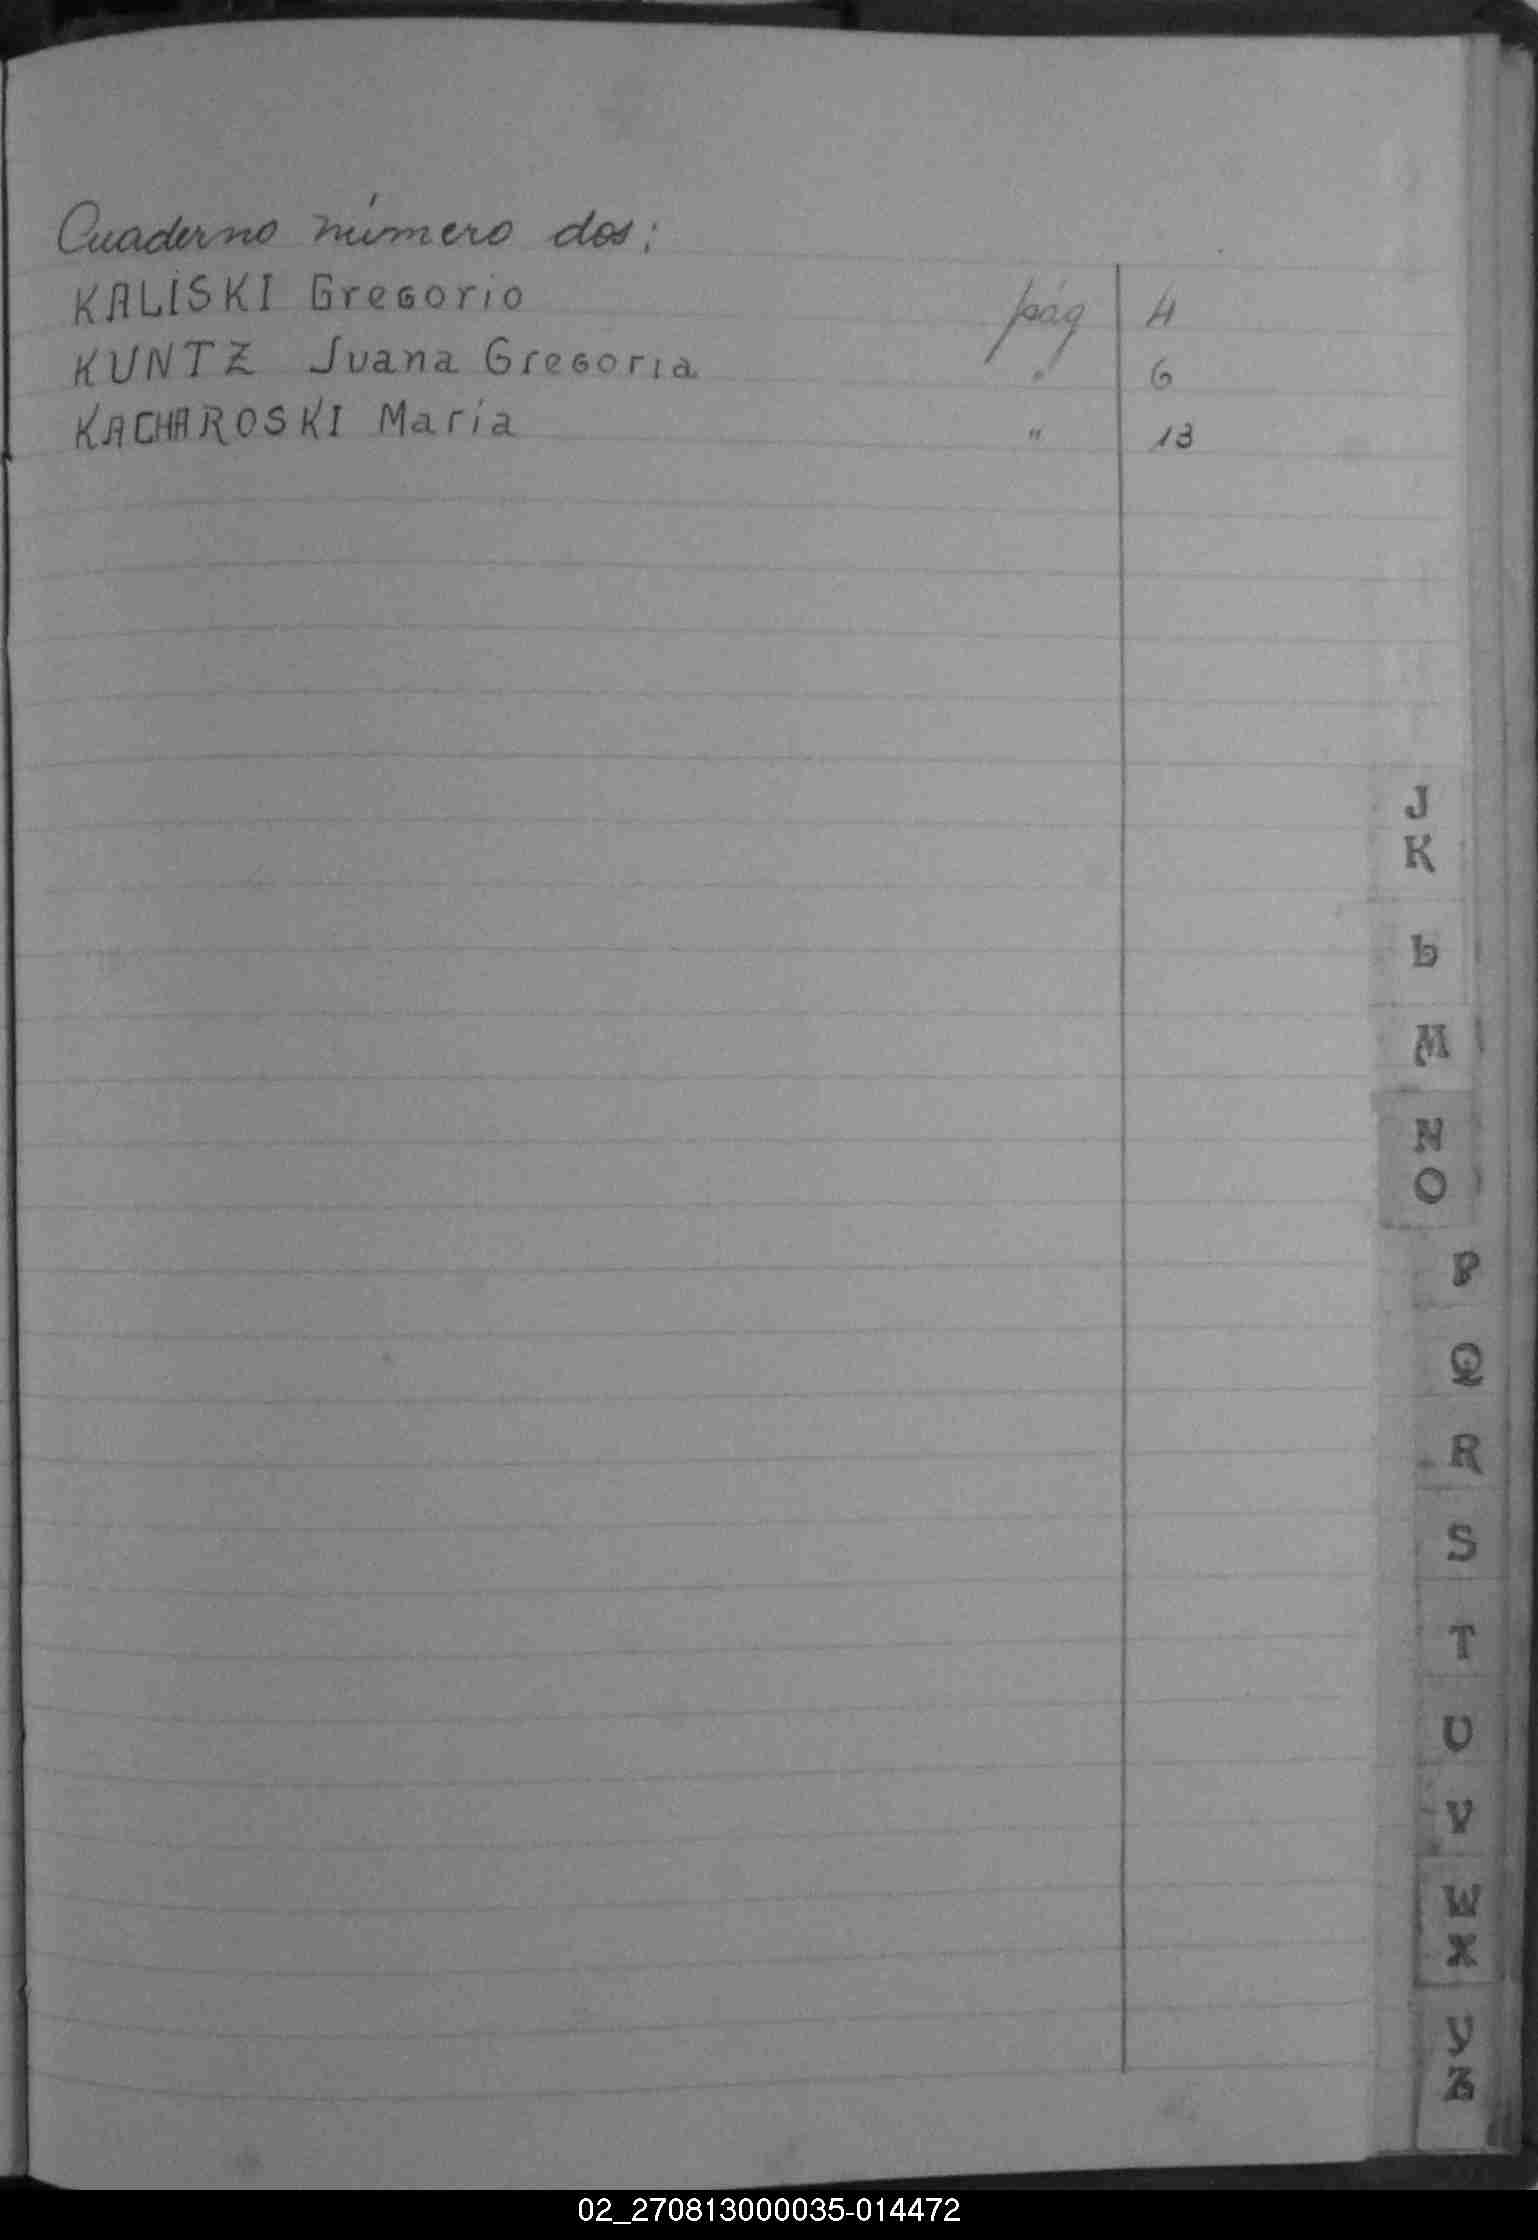 Cuaderno número dos:
KALISKI Gregorio pág 4
KUNTZ Juana Gregoria " 6
KACHAROSKI María " 13
J
K
L
M
N
O
P
Q
R
S
T
U
V
W
X
Y
Z
02_270813000035-014472